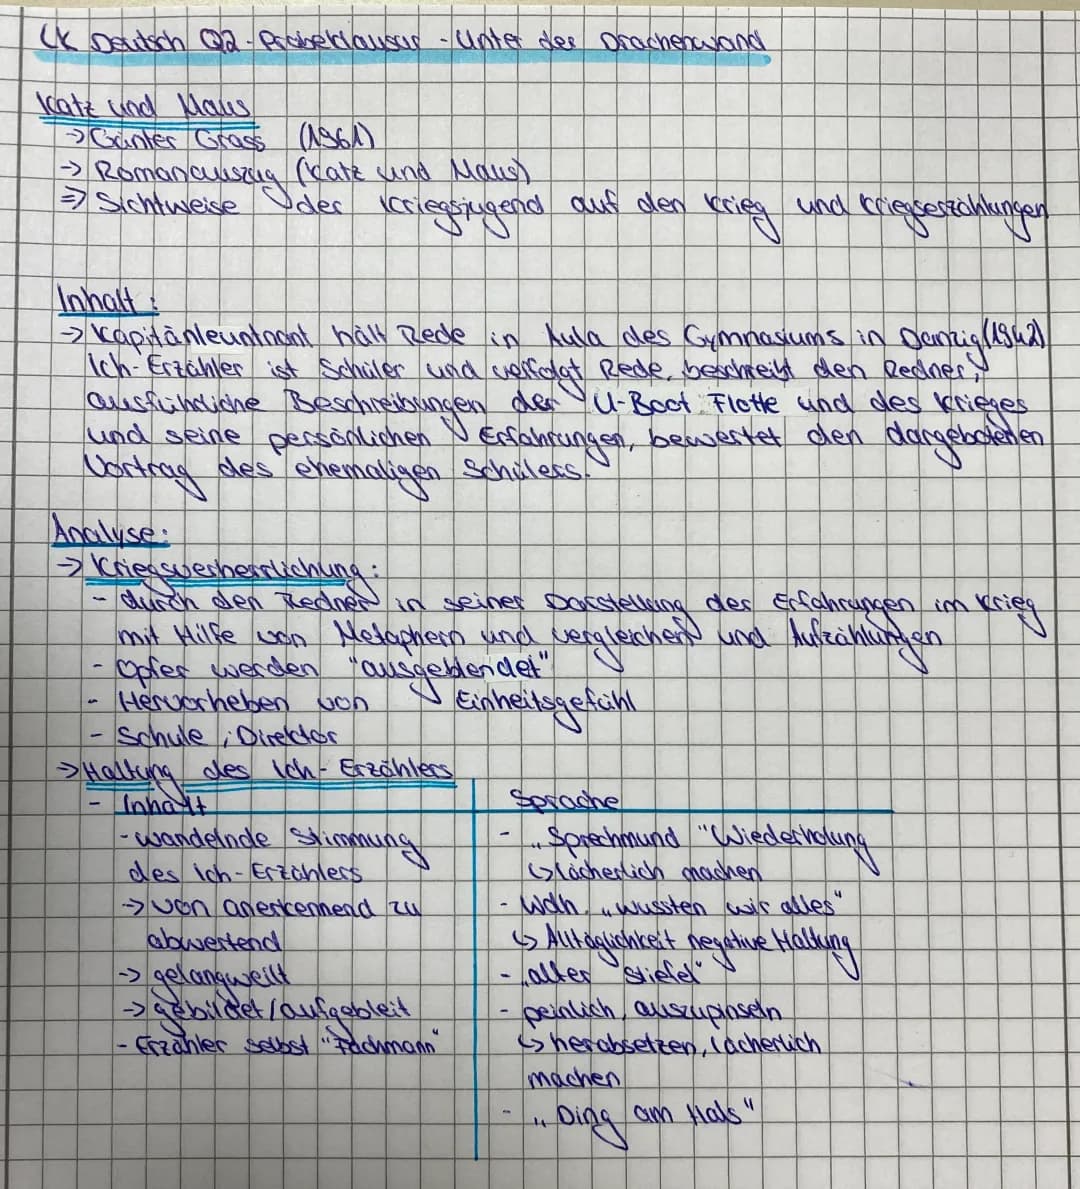 LK Deutsch Q2 - Probeklausur - Unter der Drachenwand
Katz und Maus
→ Günter Grass (1961)
→ Romanauszug (Katz und Maus)
⇒ Sichtweise der Kriegsjugend auf den Krieg und Kriegserzählungen
Inhalt:
→ Kapitänleuntnant hält Rede in Aula des Gymnasiums in Danzig (1942)
Ich-Erzähler ist Schüler und verfolgt Rede, beschreibt den Redner,
ausführliche Beschreibungen der U-Boot Flotte und des Krieges
und seine persönlichen Erfahrungen, bewertet den dargebotenen
Vortrag des ehemaligen Schülers.
Analyse:
→ Kriegsverherrlichung:
- durch den Redner in seiner Darstellung der Erfahrungen im Krieg
mit Hilfe von Metaphern und vergleichen und Aufzählungen
- Opfer werden "ausgeblendet"
- Hervorheben von Einheitsgefühl
- Schule, Direktor
→ Haltung des Ich-Erzählers
- Inhalt
- wandelnde Stimmung
des Ich-Erzählers
→ von anerkennend zu
abwertend
→ gelangweilt
→ gebildet/aufgebleit
- Erzähler selbst "Fachmann"
Sprache
- „Sprechmund" Wiederholung
↳ lächerlich machen
- Wdh. „wussten wir alles"
↳ Alltäglichkeit negative Haltung
- „alter Stiefel"
- peinlich, auszupinseln
↳ herabsetzen, lächerlich
machen
- „Ding am Hals"